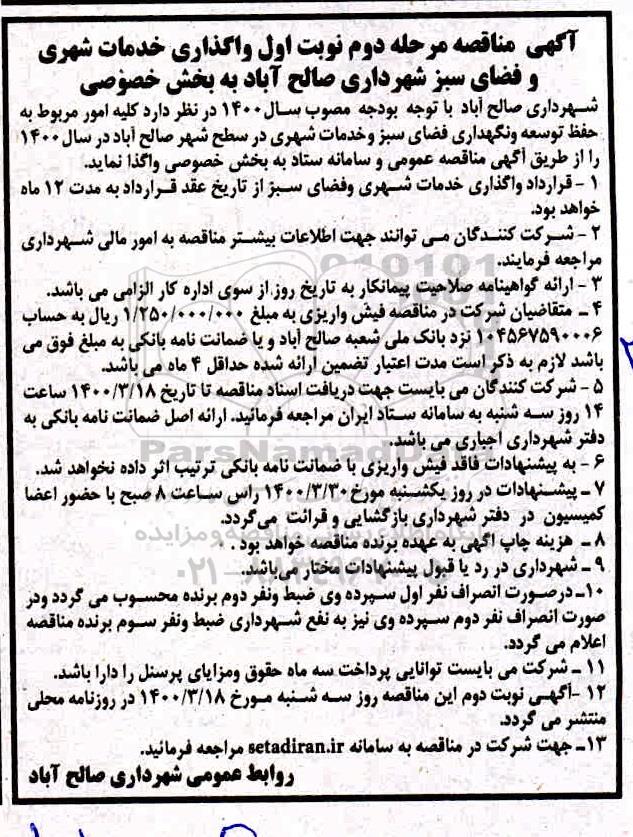 آگهی مناقصه مرحله دوم نوبت اول واگذاری خدمات شهری
و فضای سبز شهرداری صالح آباد به بخش خصوصی
شهرداری صالح آباد با توجه بودجه مصوب سال ۱۴۰۰ در نظر دارد کلیه امور مربوط به
حفظ توسعه ونگهداری فضای سبز وخدمات شهری در سطح شهر صالح آباد در سال ۱۴۰۰
را از طریق آگهی مناقصه عمومی و سامانه ستاد به بخش خصوصی واگذا نماید.
۱ - قرارداد واگذاری خدمات شهری وفضای سبز از تاریخ عقد قرارداد به مدت ۱۲ ماه
خواهد بود.
۲ - شرکت کنندگان می توانند جهت اطلاعات بیشتر مناقصه به امور مالی شهرداری
مراجعه فرمایند.
۳ - ارائه گواهینامه صلاحیت پیمانکار به تاریخ روز از سوی اداره کار الزامی می باشد.
۴ ـ متقاضیان شرکت در مناقصه فیش واریزی به مبلغ ۱/۲۵۰/۰۰۰/۰۰۰ ریال به حساب
۱۰۴۵۶۷۵۹۰۰۰۶ نزد بانک ملی شعبه صالح آباد و یا ضمانت نامه بانکی به مبلغ فوق می
باشد لازم به ذکر است مدت اعتبار تضمین ارائه شده حداقل ۴ ماه می باشد.
۵ - شرکت کنندگان می بایست جهت دریافت اسناد مناقصه تا تاریخ ۱۴۰۰/۳/۱۸ ساعت
۱۴ روز سه شنبه به سامانه ستاد ایران مراجعه فرمائید. ارائه اصل ضمانت نامه بانکی به
دفتر شهرداری اجباری می باشد.
۶ - به پیشنهادات فاقد فیش واریزی با ضمانت نامه بانکی ترتیب اثر داده نخواهد شد.
۷ ـ پیشنهادات در روز یکشنبه مورخ ۱۴۰۰/۳/۳۰ راس ساعت ۸ صبح با حضور اعضا
کمیسیون در دفتر شهرداری بازگشایی و قرائت می‌گردد.
۸ ـ هزینه چاپ آگهی به عهده برنده مناقصه خواهد بود .
۹ ـ شهرداری در رد یا قبول پیشنهادات مختار می‌باشد.
۱۰ـ درصورت انصراف نفر اول سپرده وی ضبط ونفر دوم برنده محسوب می گردد ودر
صورت انصراف نفر دوم سپرده وی نیز به نفع شهرداری ضبط ونفر سوم برنده مناقصه
اعلام می گردد.
۱۱ ـ شرکت می بایست توانایی پرداخت سه ماه حقوق ومزایای پرسنل را دارا باشد.
۱۲ -آگهی نوبت دوم این مناقصه روز سه شنبه مورخ ۱۴۰۰/۳/۱۸ در روزنامه محلی
منتشر می گردد.
۱۳ـ جهت شرکت در مناقصه به سامانه setadiran.ir مراجعه فرمائید.
روابط عمومی شهرداری صالح آباد
ParsNamadData